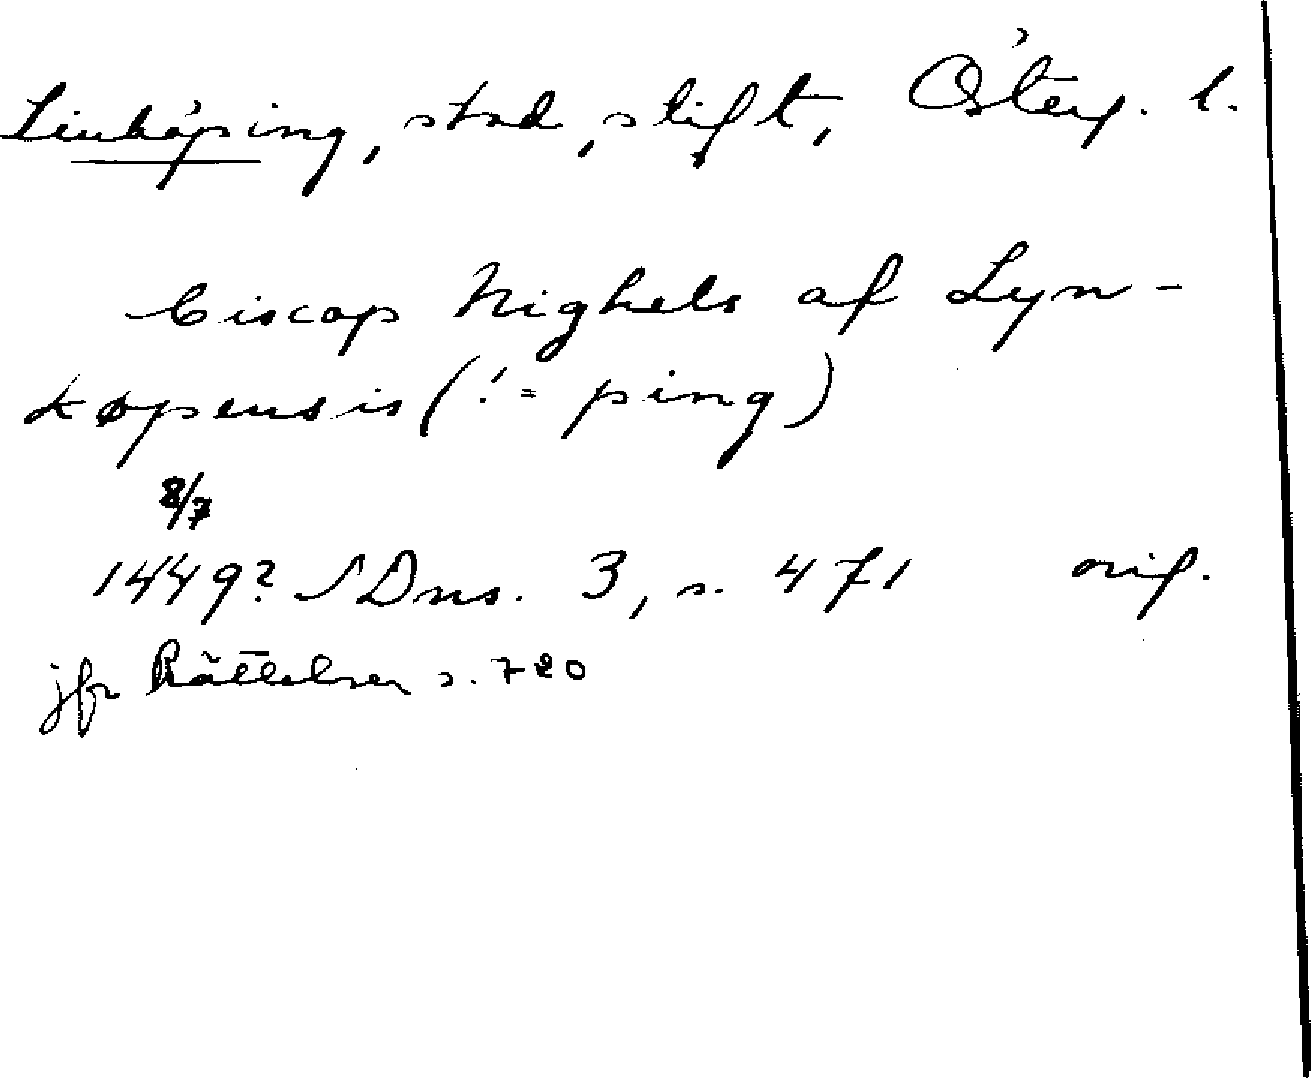 Linköping, stad, stift, Österg. l.
biscop Nighels af Lyn-
køpensis (! = ping)
8/7
1449? SDns. 3, s. 471 orig.
jfr Rättelser s. 720